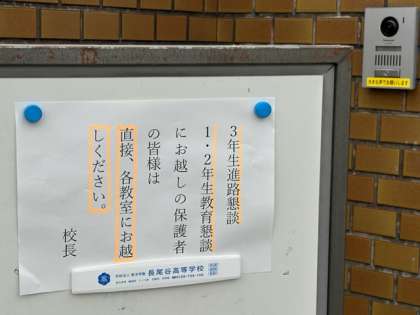 3年生進路懇談
1・2年生教育懇談
にお越しの保護者
の皆様は
直接、各教室にお越
しください。
校長
長尾谷高等学校